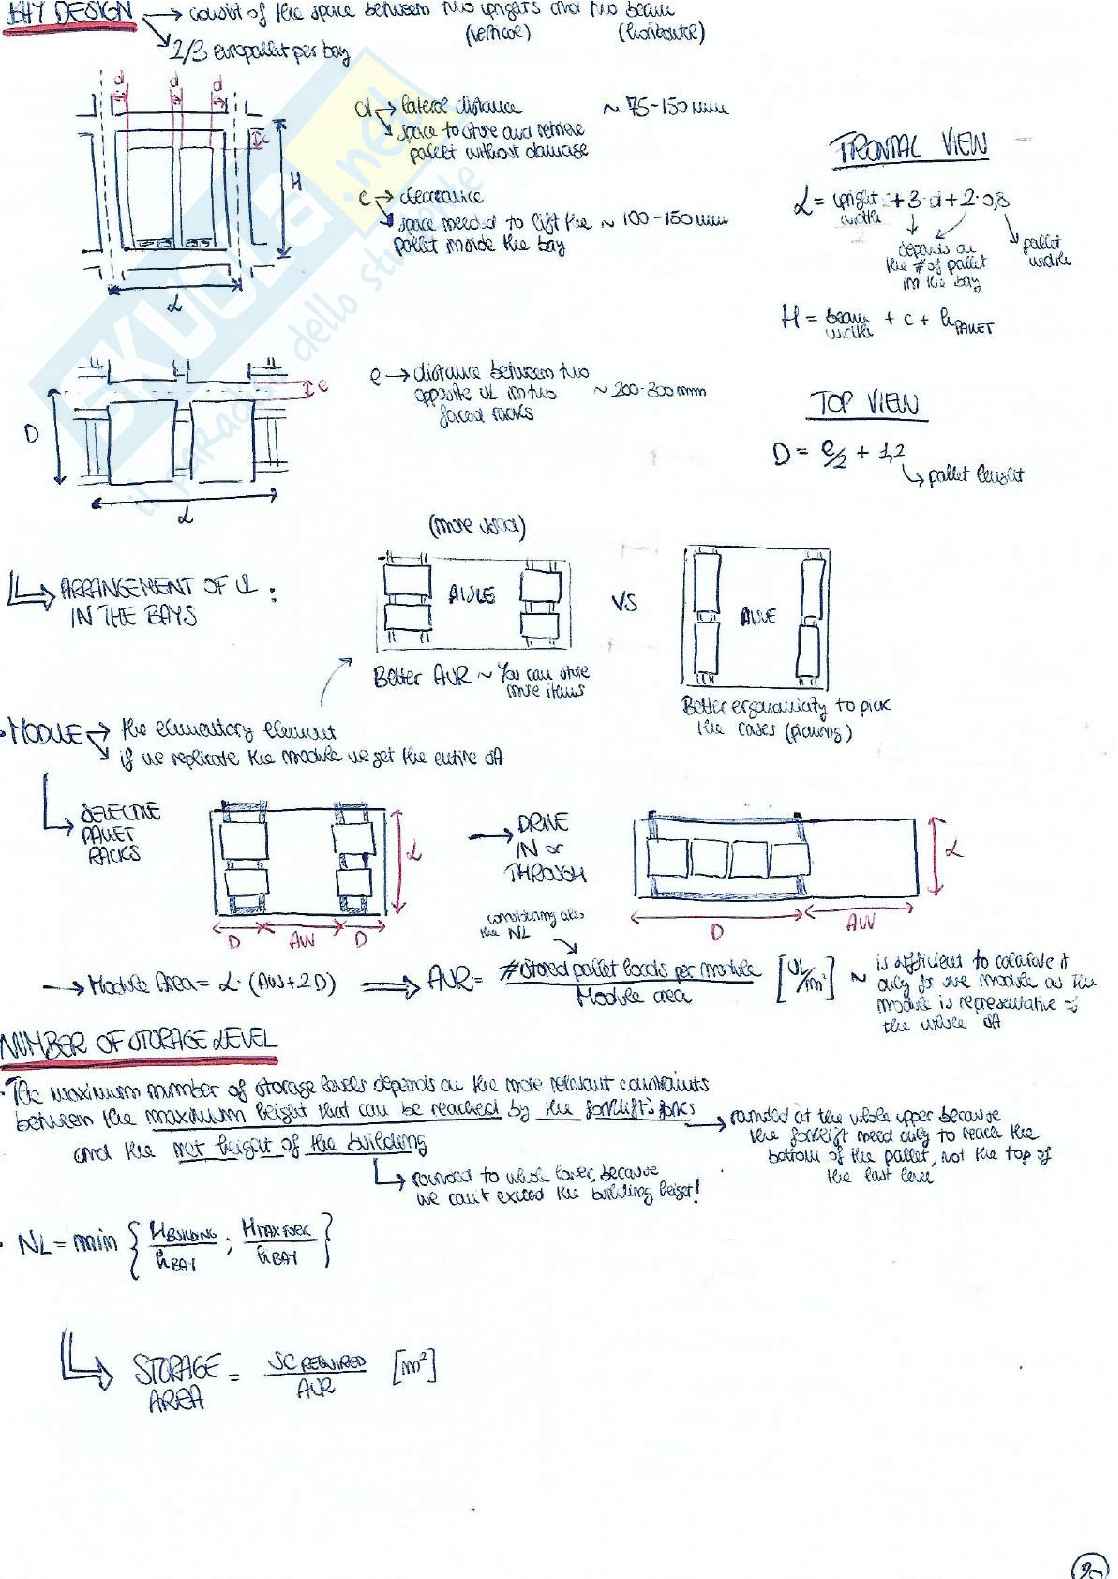 BAY DESIGN → consist of the space between two uprights and two beam
(vertical) (horizontal)
2/3 europallet per bay
d d
d → lateral distance ~ 75-150 mm
space to store and retrieve
pallet without damage
c
H
c → clearance
space needed to lift the ~ 100-150 mm
pallet inside the bay
L
FRONTAL VIEW
L = upright width + 3·d + 2·0,8
depends on
the # of pallet
in the bay
pallet
width
H = beam width + c + h PALLET
e → distance between two
opposite UL in two ~ 200-300 mm
faced racks
e
D
L
TOP VIEW
D = e/2 + 1,2
pallet lenght
SKUOLA.net
il paradiso dello studente
(more used)
ARRANGEMENT OF UL :
IN THE BAYS
AISLE
VS
AISLE
Better AUR ~ You can store
more items
Better ergonomicity to pick
the cases (picking)
• MODULE → the elementary element
if we replicate the module we get the entire SA
SELECTIVE
PALLET
RACKS
L
D AW D
→ DRIVE
IN or
THROUGH
L
D AW
considering also
the NL
→ Module Area = L·(AW+2D) ⇒ AUR = # stored pallet loads per module / Module area [UL/m²] ~ is sufficient to calculate it
only for one module as the
module is representative of
the whole SA
NUMBER OF STORAGE LEVEL
• The maximum number of storage levels depends on the more relevant constraints
between the maximum height that can be reached by the forklift's forks → rounded at the whole upper because
the forklift need only to reach the
bottom of the pallet, not the top of
the last level
and the net height of the building
rounded to whole lower, because
we can't exceed the building height!
• NL = min { H BUILDING / h BAY ; H MAX FORK / h BAY }
STORAGE AREA = SC REQUIRED / AUR [m²]